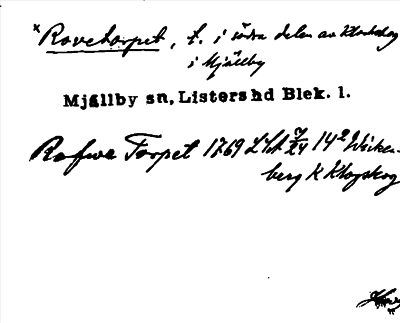 *Rovetorpet, t. i södra delen av Klockskog
i Mjällby
Mjällby sn, Listers hd Blek. l.
Rofwe Torpet 1769 14² Wicken-
berg K Klogskog